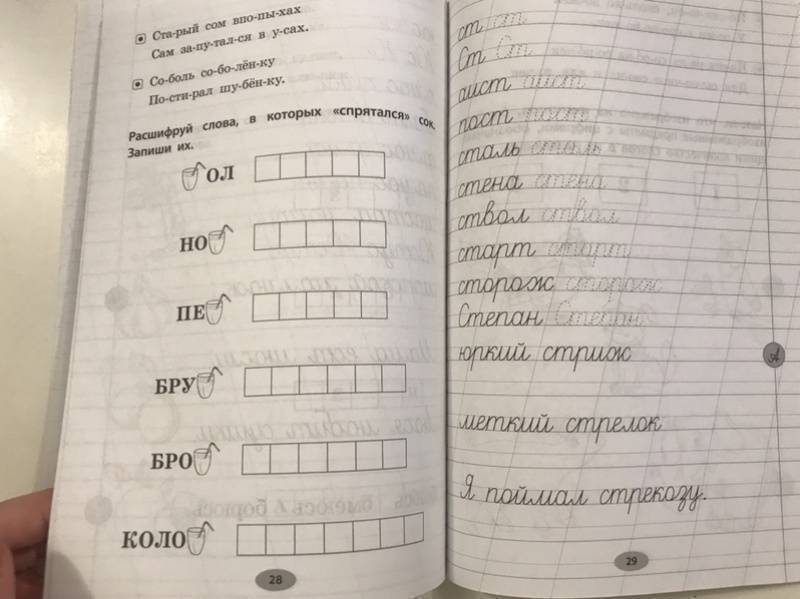 Ста-рый сом впо-пы-хах
Сам за-пу-тал-ся в у-сах.
Со-боль со-бо-лён-ку
По-сти-рал шу-бён-ку.
Расшифруй слова, в которых «спрятался» сок.
Запиши их.
ОЛ
НО
ПЕ
БРУ
БРО
КОЛО
28
ст ст
Ст Ст
аист аист
пост пост
сталь сталь
стена стена
ствол ствол
старт старт
сторож сторож
Степан Степан
юркий стриж
меткий стрелок
Я поймал стрекозу.
29